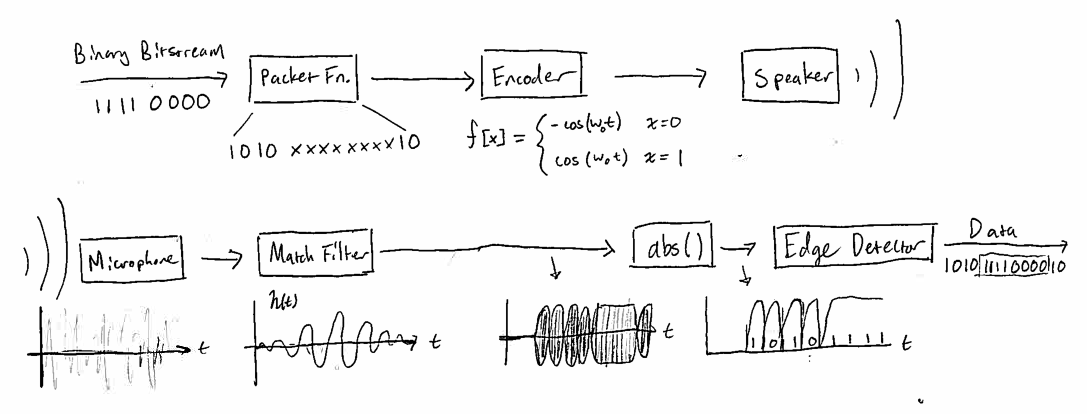 Binary Bitstream
1111 0000
Packet Fn.
1010 xxxxxxxx10
Encoder
f[x] = { -cos(w₀t) x=0
cos(w₀t) x=1
Speaker
Microphone
Match Filter
abs()
Edge Detector
Data
1010 11110000 10
t
h(t)
t
t
1 0 1 0 1 1 1 1
t